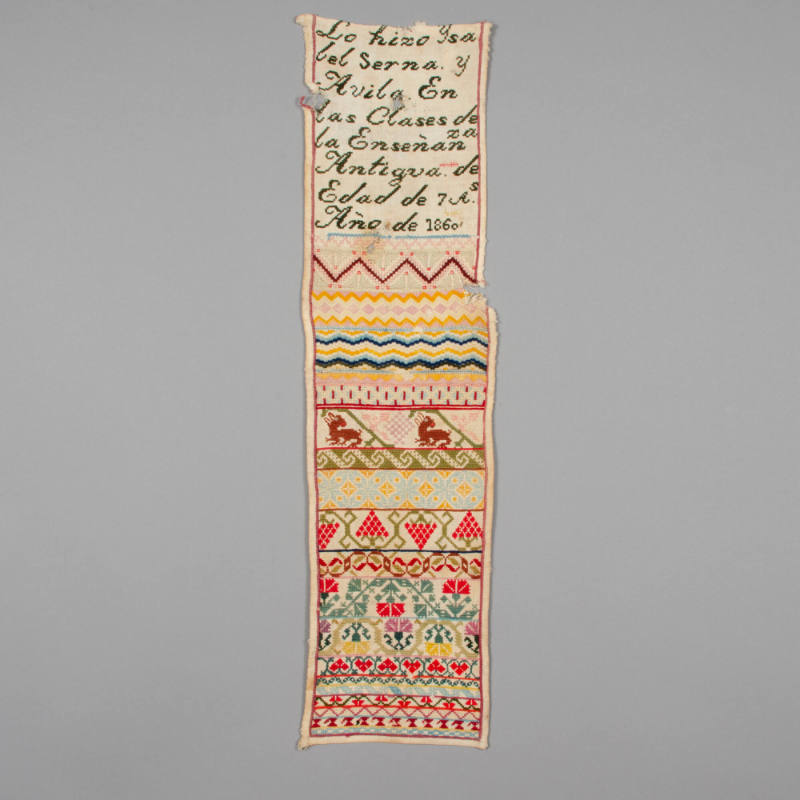 Lo hizo Ysa
bel Serna. y
Avila. En
las Clases de
la Enseñanza
Antigua. de
Edad de 7 As.
Año de 1860